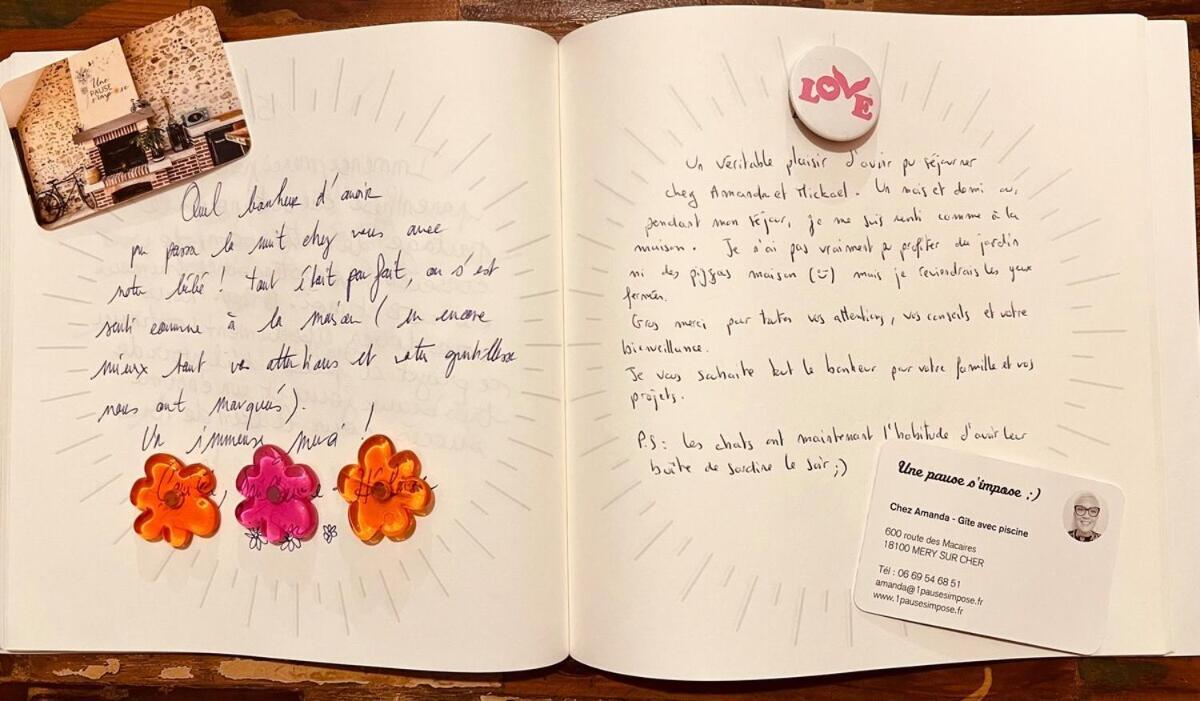 Une
PAUSE
s'impose
Quel bonheur d'avoir
pu passer la nuit chez vous avec
notre bébé ! Tout était parfait, on s'est
senti comme à la maison (ou encore
mieux tant vos attentions et votre gentillesse
nous ont marqués).
Un immense merci !
LOVE
Un véritable plaisir d'avoir pu séjourner
chez Amanda et Mickael. Un mois et demi où,
pendant mon séjour, je me suis senti comme à la
maison. Je n'ai pas vraiment pu profiter du jardin
ni des pizzas maison (:)) mais je reviendrais les yeux
fermés.
Gros merci pour toutes vos attentions, vos conseils et votre
bienveillance.
Je vous souhaite tout le bonheur pour votre famille et vos
projets.
P.S : Les chats ont maintenant l'habitude d'avoir leur
boîte de sardine le soir ;)
Une pause s'impose ;)
Chez Amanda - Gîte avec piscine
600 route des Macaires
18100 MERY SUR CHER
Tél : 06 69 54 68 51
amanda@1pausesimpose.fr
www.1pausesimpose.fr